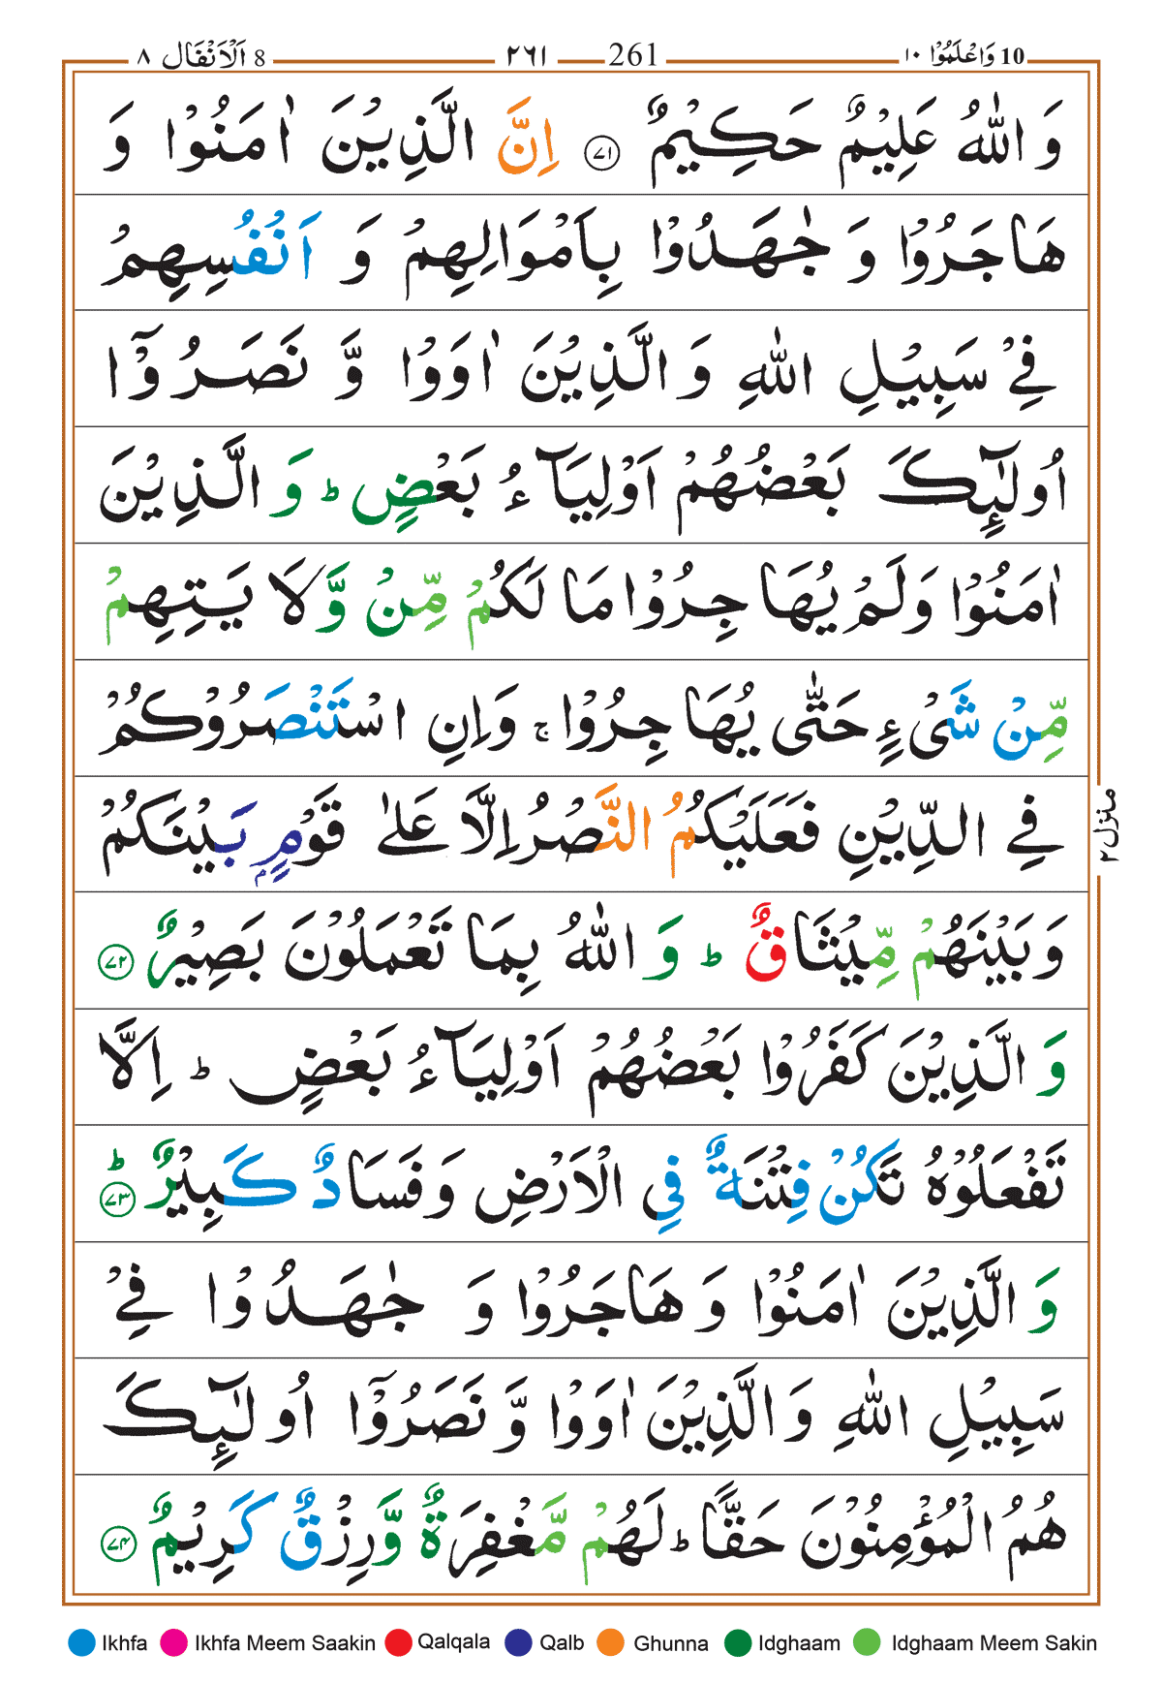 10 وَاعْلَمُوْٓا ١٠ — 261 — ٢٦١ — 8 اَلْاَنْفَال ٨
وَ اللّٰهُ عَلِيْمٌ حَكِيْمٌ ﴿٧١﴾ اِنَّ الَّذِيْنَ اٰمَنُوْا وَ
هَاجَرُوْا وَ جٰهَدُوْا بِاَمْوَالِهِمْ وَ اَنْفُسِهِمْ
فِيْ سَبِيْلِ اللّٰهِ وَ الَّذِيْنَ اٰوَوْا وَّ نَصَرُوْٓا
اُولٰٓىِٕكَ بَعْضُهُمْ اَوْلِيَآءُ بَعْضٍ ؕ وَ الَّذِيْنَ
اٰمَنُوْا وَ لَمْ يُهَاجِرُوْا مَا لَكُمْ مِّنْ وَّلَا يَتِهِمْ
مِّنْ شَيْءٍ حَتّٰى يُهَاجِرُوْا ۚ وَ اِنِ اسْتَنْصَرُوْكُمْ
فِي الدِّيْنِ فَعَلَيْكُمُ النَّصْرُ اِلَّا عَلٰى قَوْمٍۭ بَيْنَكُمْ
وَ بَيْنَهُمْ مِّيْثَاقٌ ؕ وَ اللّٰهُ بِمَا تَعْمَلُوْنَ بَصِيْرٌ ﴿٧٢﴾
وَ الَّذِيْنَ كَفَرُوْا بَعْضُهُمْ اَوْلِيَآءُ بَعْضٍ ؕ اِلَّا
تَفْعَلُوْهُ تَكُنْ فِتْنَةٌ فِي الْاَرْضِ وَ فَسَادٌ كَبِيْرٌ ؕ﴿٧٣﴾
وَ الَّذِيْنَ اٰمَنُوْا وَ هَاجَرُوْا وَ جٰهَدُوْا فِيْ
سَبِيْلِ اللّٰهِ وَ الَّذِيْنَ اٰوَوْا وَّ نَصَرُوْٓا اُولٰٓىِٕكَ
هُمُ الْمُؤْمِنُوْنَ حَقًّا ؕ لَهُمْ مَّغْفِرَةٌ وَّ رِزْقٌ كَرِيْمٌ ﴿٧٤﴾
منزل ٢
Ikhfa Ikhfa Meem Saakin Qalqala Qalb Ghunna Idghaam Idghaam Meem Sakin